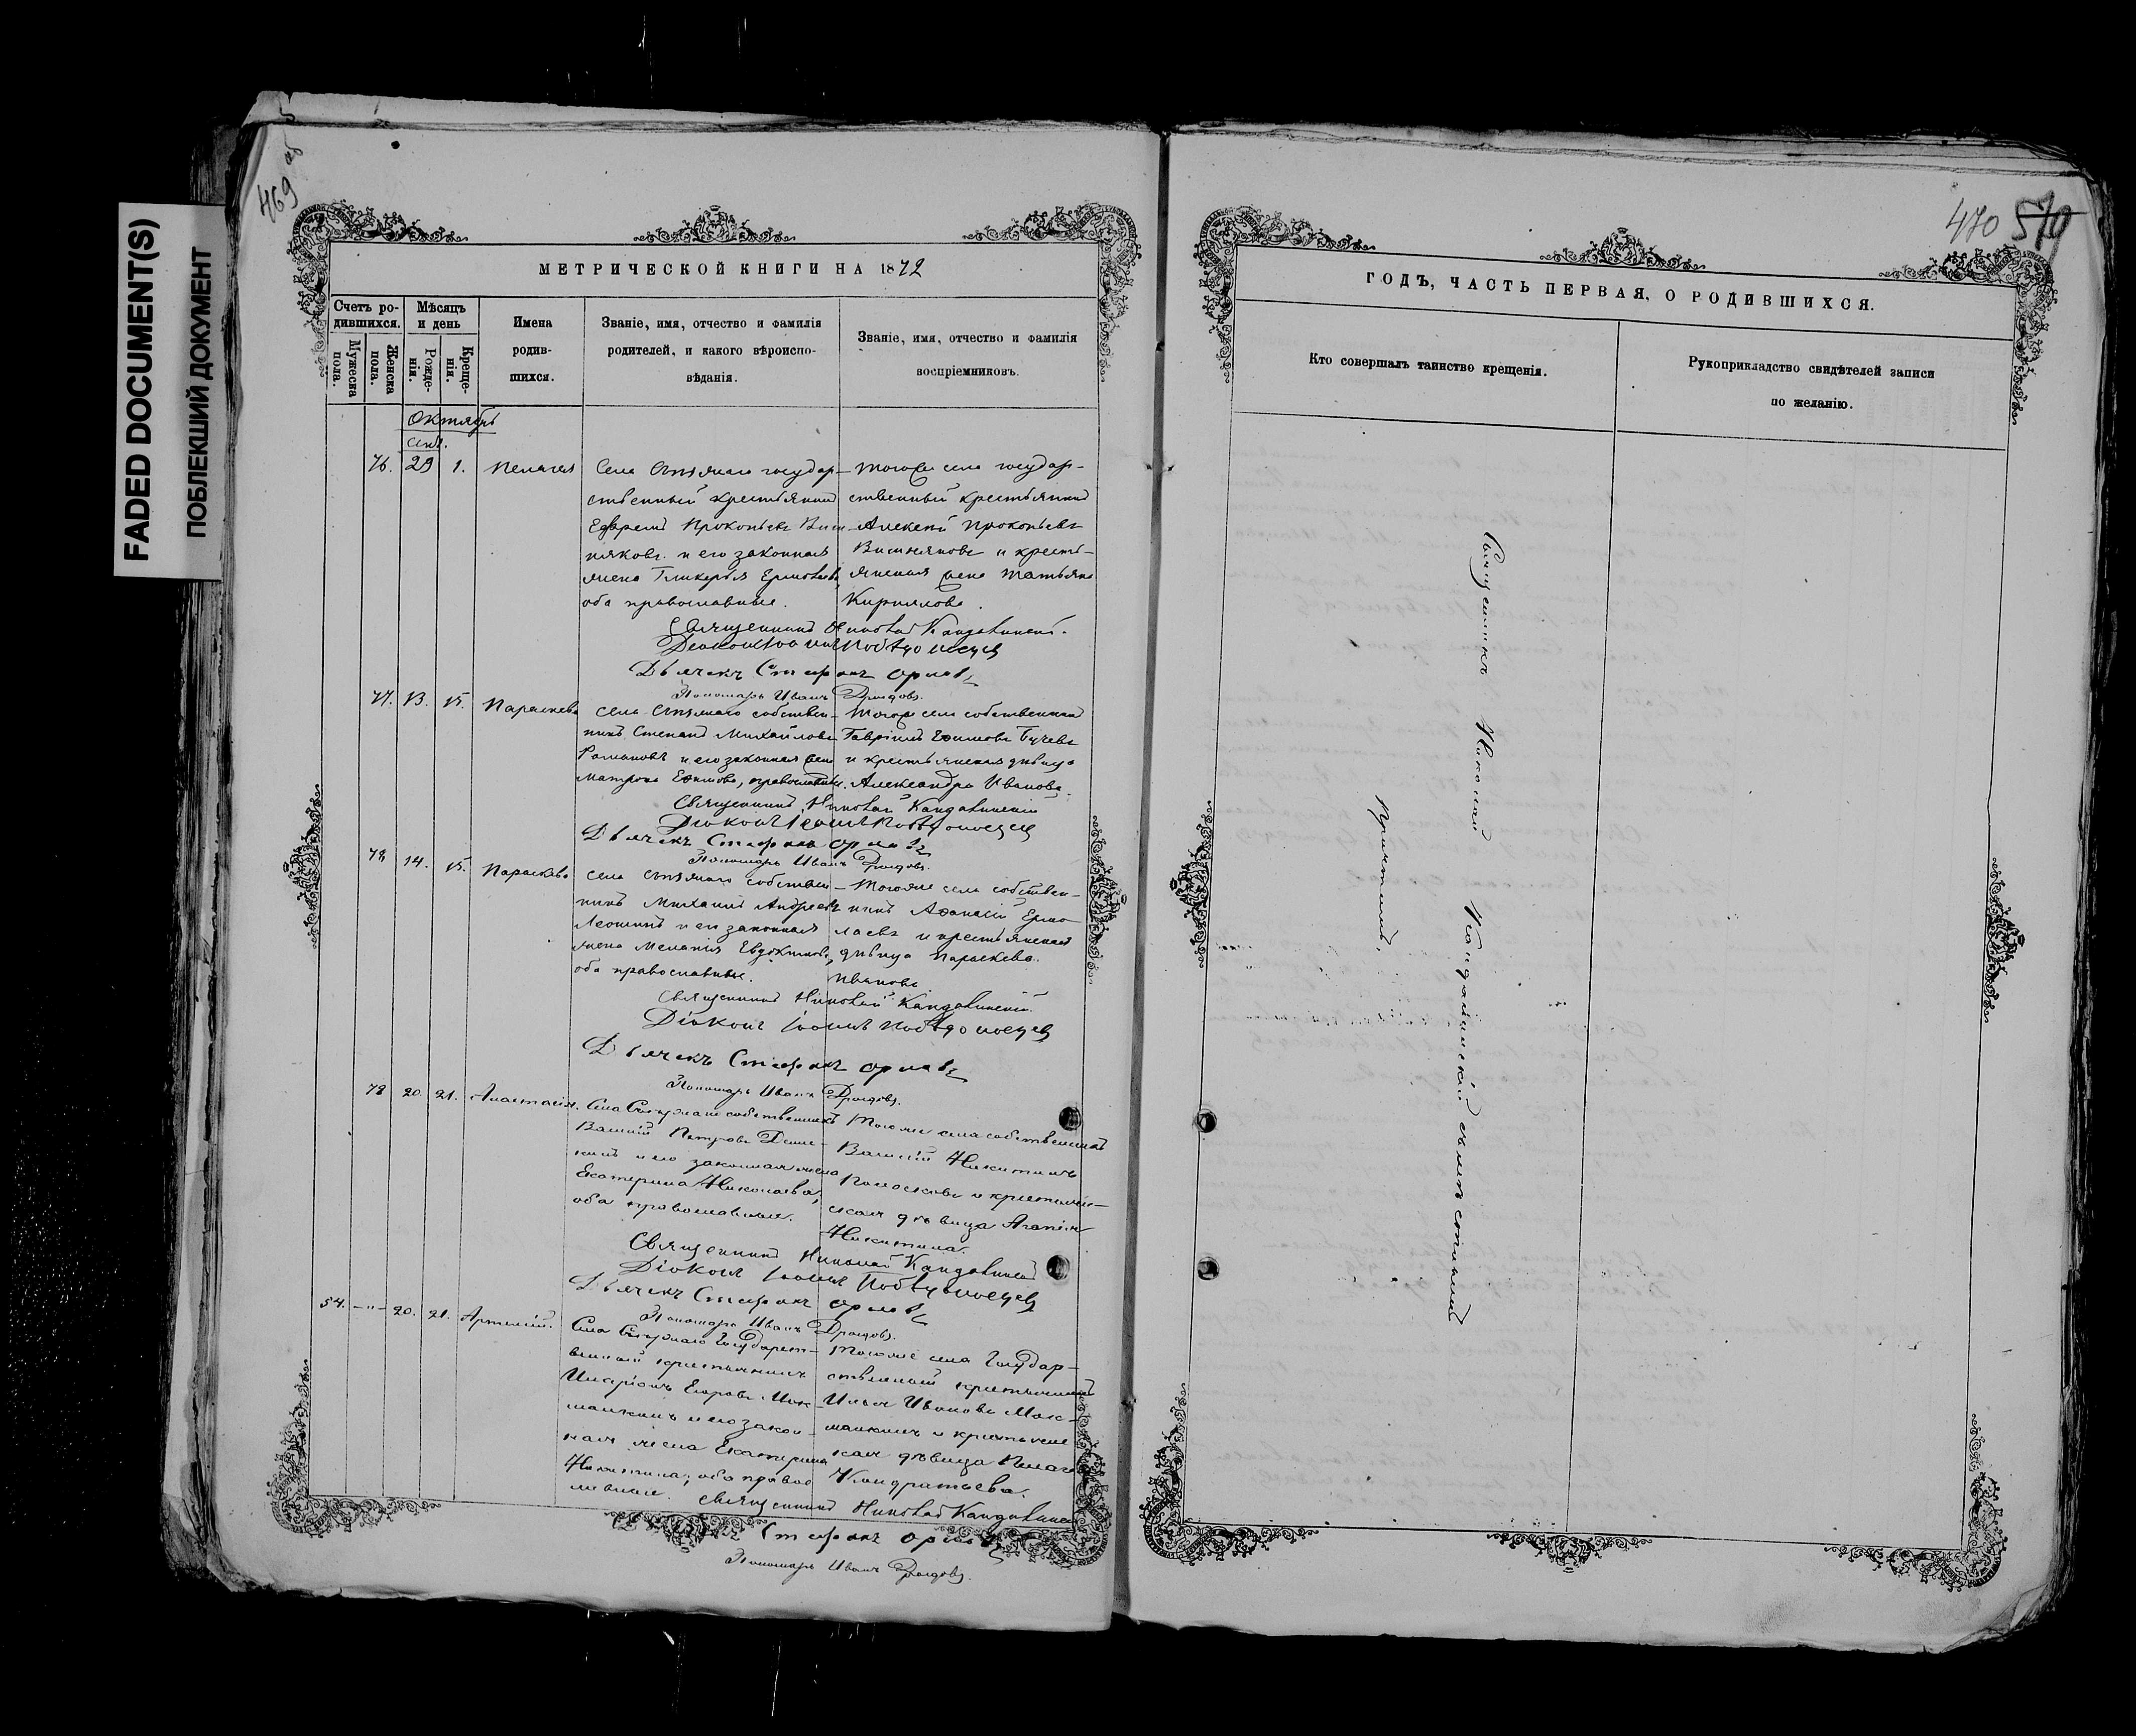 FADED DOCUMENT(S)
ПОБЛЕКШИЙ ДОКУМЕНТ
469 об
МЕТРИЧЕСКОЙ КНИГИ НА 1872
Счетъ ро-
дившихся.
Мужеска
пола.
Женска
пола.
Мѣсяцъ
и день
Рожде-
нія.
Креще-
нія.
Имена
родив-
шихся.
Званіе, имя, отчество и фамилія
родителей, и какого вѣроиспо-
вѣданія.
Званіе, имя, отчество и фамилія
воспріемниковъ.
Октябрь
Сент.
76. 29 1. Пелагея
Села государ-
ственный крестьянинъ
Прокопьевъ Виш-
няковъ и его законная
жена Гликерія Ермолаева
оба православные.
Тогоже села государ-
ственный крестьянинъ
Алексей Прокопьевъ
Вишняковъ и кресть-
янская жена Татьяна
Кирилова.
Священникъ Николай Кандалинскій.
Діаконъ Іоаннъ Победоносцевъ
Дьячекъ Стефанъ Орловъ
Пономарь Иванъ Дроздовъ.
77. 13. 15. Параскева
села собствен-
никъ Степанъ Михайловъ
Романовъ и его законная жена
Матрона Ефимова, православные.
Тогоже села собственникъ
Гавріилъ Ефимовъ
и крестьянская дѣвица
Александра Иванова.
Священникъ Николай Кандалинскій
Діаконъ Іоаннъ Победоносцевъ
Дьячекъ Стефанъ Орловъ
Пономарь Иванъ Дроздовъ.
78 14. 15. Параскева
села собствен-
никъ Михаилъ Андреевъ
Леошинъ и его законная
жена Меланія Евдокимова,
оба православные.
Тогоже села собствен-
никъ Аѳанасій Ермо-
лаевъ и крестьянская
дѣвица Параскева
Иванова
Священникъ Николай Кандалинскій.
Діаконъ Іоаннъ Победоносцевъ
Дьячекъ Стефанъ Орловъ
Пономарь Иванъ Дроздовъ.
78 20. 21. Анастасія.
Села собственникъ
Василій Петровъ
и его законная жена
Екатерина Николаева,
оба православные.
Тогоже села собственникъ
Василій Никитинъ
и крестьян-
ская дѣвица Агапія
Никитина.
Священникъ Николай Кандалинскій
Діаконъ Іоаннъ Победоносцевъ
Дьячекъ Стефанъ Орловъ
Пономарь Иванъ Дроздовъ.
54. -"- 20. 21. Артемій.
Села Государст-
венный крестьянинъ
Иларіонъ Егоровъ Мок-
и его закон-
ная жена Екатерина
Никитина; оба право-
славные.
Тогоже села Государ-
ственный крестьянинъ
Илья Ивановъ Мок-
и крестьянс-
кая дѣвица Пелагея
Кондратьева.
Священникъ Николай Кандалинскій
Стефанъ Орловъ
Пономарь Иванъ Дроздовъ.
470 570
ГОДЪ, ЧАСТЬ ПЕРВАЯ, О РОДИВШИХСЯ.
Кто совершалъ таинство крещенія.
Рукоприкладство свидѣтелей записи
по желанію.
Священникъ Николай Кандалинскій съ мѣстнымъ
Причтомъ.